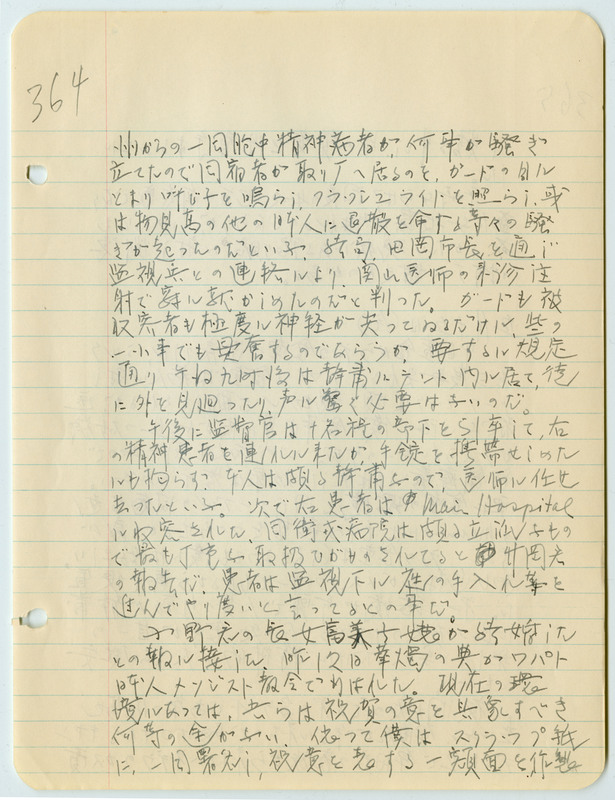 364
州からの一同胞中精神病者が、何事か騒ぎ
立てたので同宿者が取り下へ居るのを、ガードの目に
とまり呼び子を鳴らし、フラッシュライトを照らし、或
は物見高の他の日本人に退散を命ずる等々の騒
ぎが起ったのだといふ。結局、田岡市長を通じ
監視兵との連絡により、関山医師の来診注
射で寝に就かしめたのだと判った。ガードも被
収容者も極度に神経が尖ってゐるだけに、些の
一小事でも興奮するのであらうか。要するに規定
通り午后九時后は静粛にテント内に居て、徒
に外を見廻ったり、声に驚く必要はないのだ。
午後に監督官は十名程の部下を引率して、右
の精神患者を連れに来たが、手錠を携帯せしめた
にも拘らず、本人は頗る静粛なので、医師に任せ
去ったといふ。次で右患者は Main Hospital
に収容された。同衛戍病院は頗る立派なもの
で最も丁寧な取扱ひがなされてると 廿岡君
の報告だ。患者は監視下に 庭の手入れ等を
進んでやり度いと言ってるとの事だ。
小野君の長女富美子嬢が結婚した
との報に接した。昨12日華燭の典がワパト
日本人メソジスト教会で行はれた。現在の環
境にあっては、吾らは祝賀の意を具象すべき
何等の金がない、依って僕はスクラップ紙
に、一同署名し、祝意を表する一額面を作製